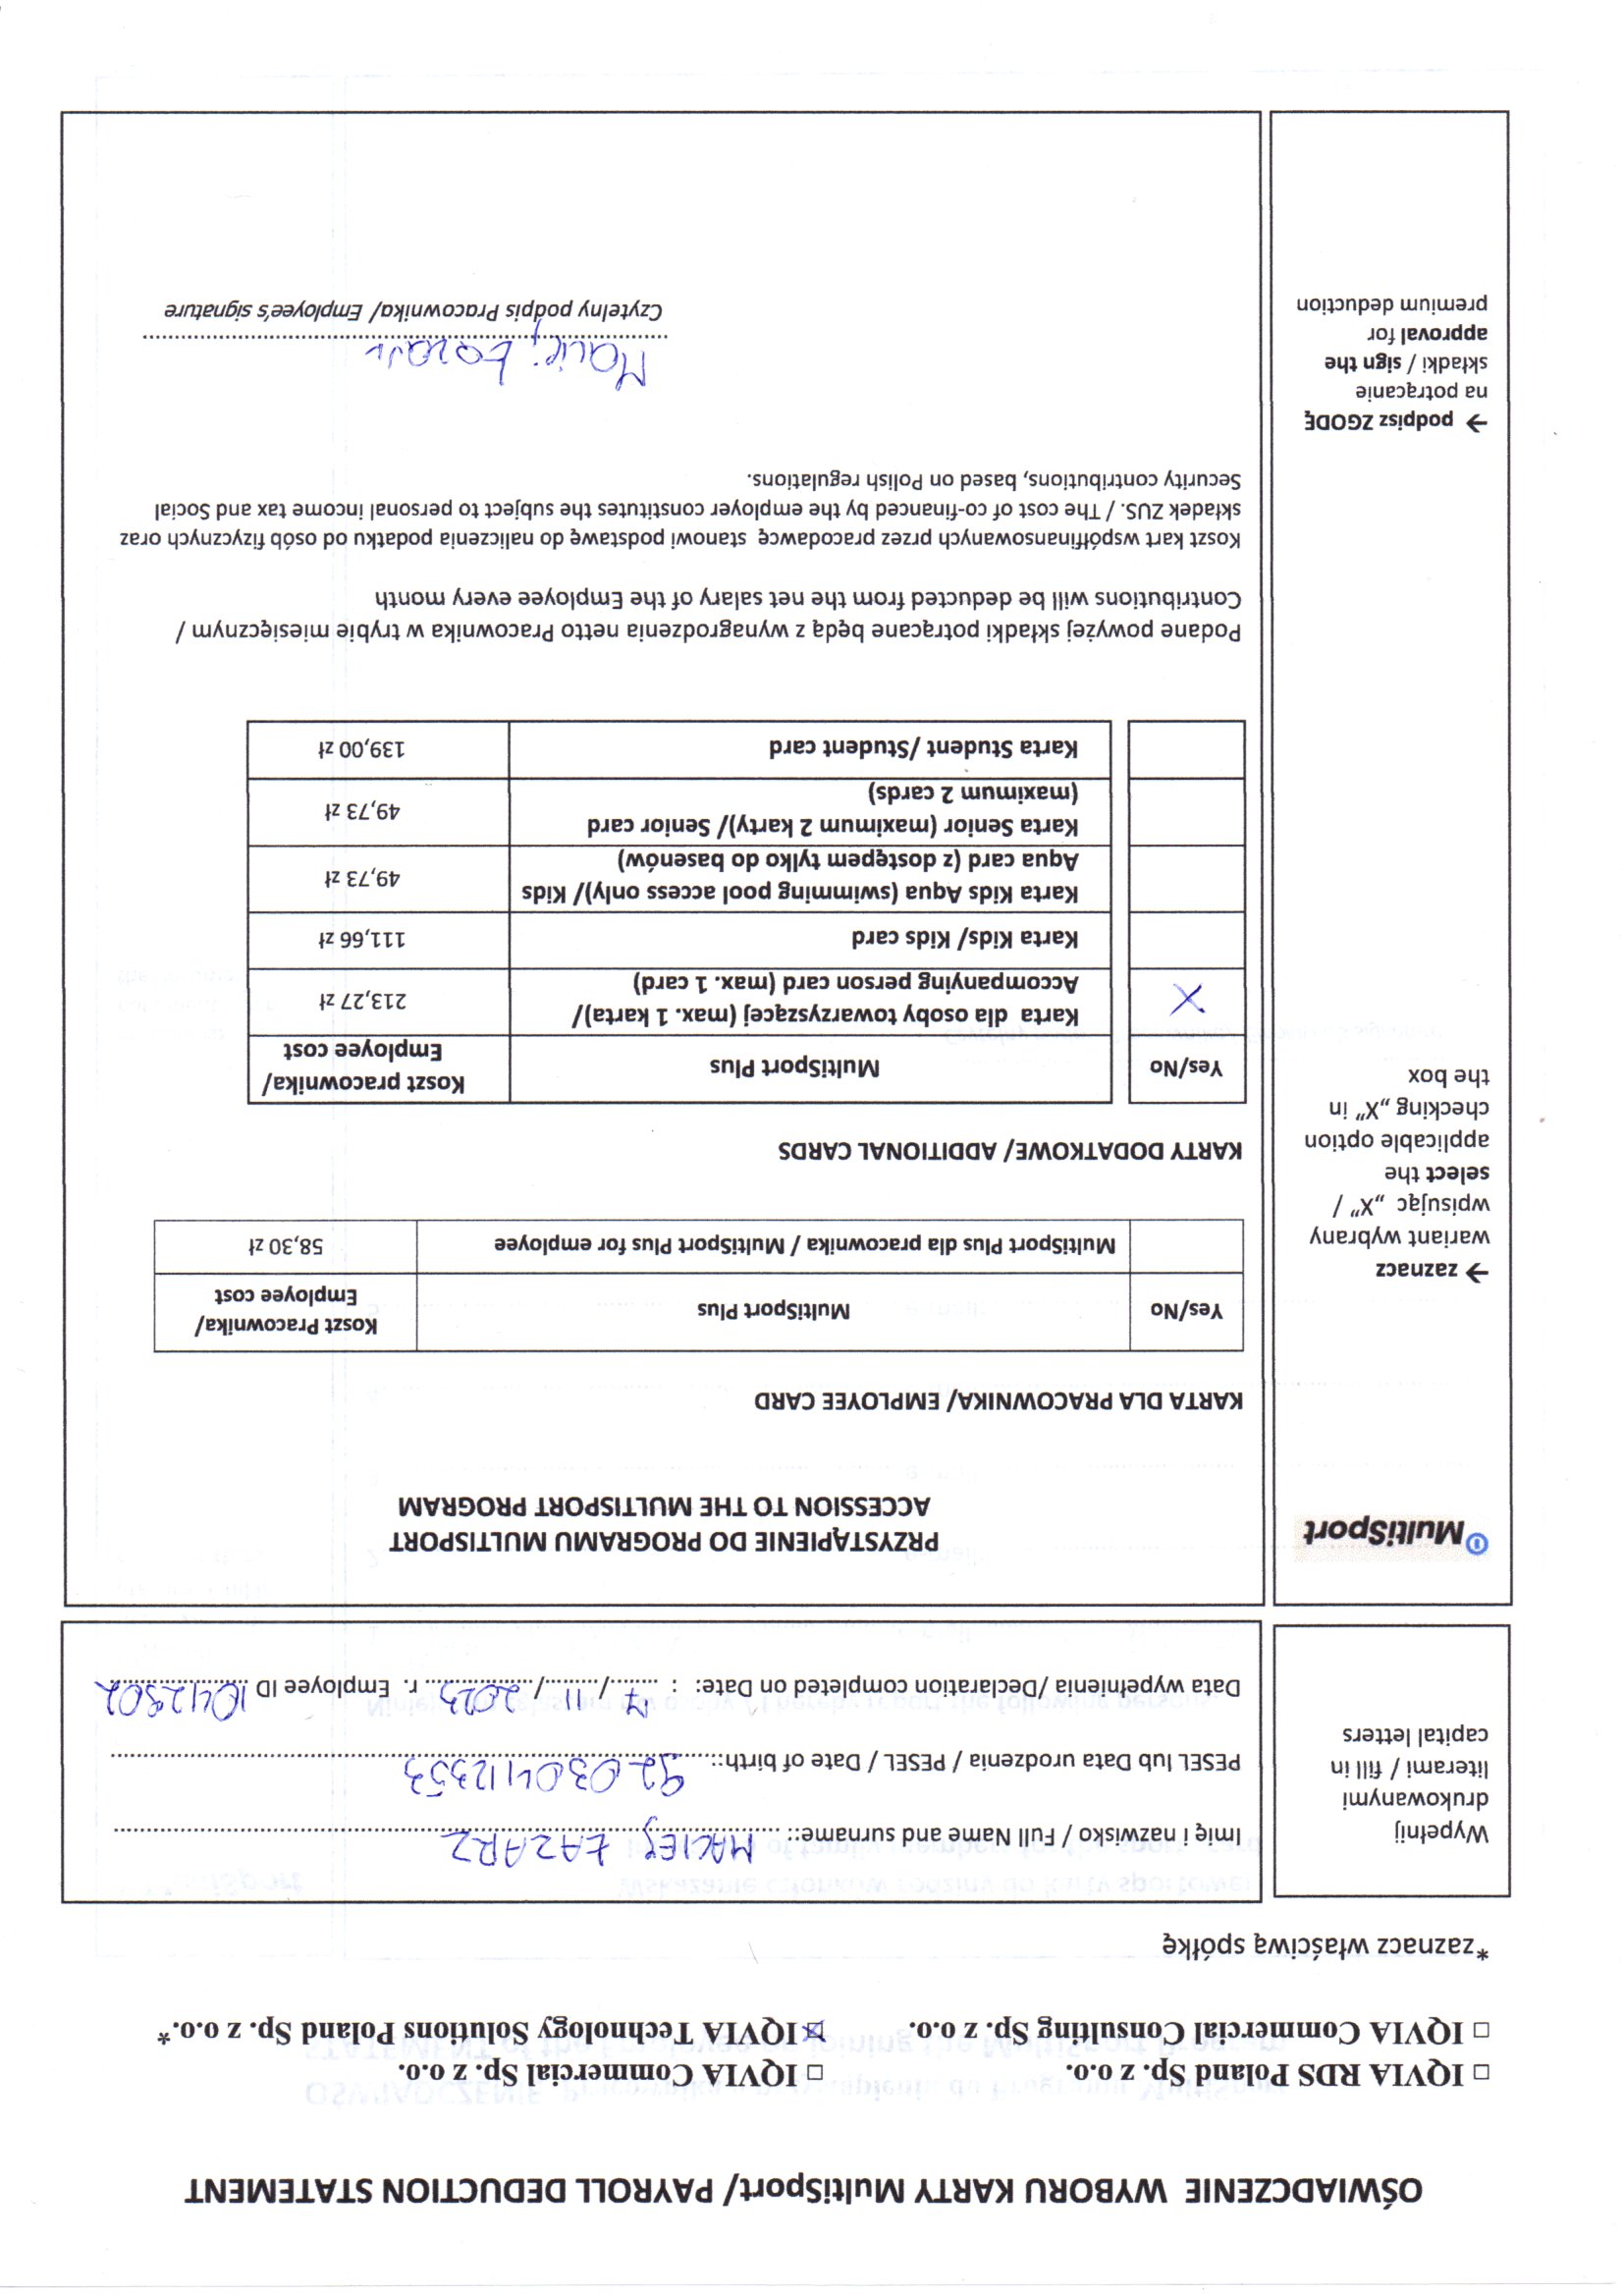 OŚWIADCZENIE WYBORU KARTY MultiSport/ PAYROLL DEDUCTION STATEMENT
□ IQVIA RDS Poland Sp. z o.o. □ IQVIA Commercial Sp. z o.o.
□ IQVIA Commercial Consulting Sp. z o.o. ☒ IQVIA Technology Solutions Poland Sp. z o.o.*
*zaznacz właściwą spółkę
Wypełnij
drukowanymi
literami / fill in
capital letters
Imię i nazwisko / Full Name and surname:: MACIEJ ŁAZARZ
PESEL lub Data urodzenia / PESEL / Date of birth:: 92030412353
Data wypełnienia /Declaration completed on Date: : 7 / 11 / 2023 r. Employee ID 1042902
MultiSport
→ zaznacz
wariant wybrany
wpisując „X” /
select the
applicable option
checking „X” in
the box
→ podpisz ZGODĘ
na potrącanie
składki / sign the
approval for
premium deduction
PRZYSTĄPIENIE DO PROGRAMU MULTISPORT
ACCESSION TO THE MULTISPORT PROGRAM
KARTA DLA PRACOWNIKA/ EMPLOYEE CARD
Yes/No MultiSport Plus Koszt Pracownika/
Employee cost
MultiSport Plus dla pracownika / MultiSport Plus for employee 58,30 zł
KARTY DODATKOWE/ ADDITIONAL CARDS
Yes/No MultiSport Plus Koszt pracownika/
Employee cost
X Karta dla osoby towarzyszącej (max. 1 karta)/
Accompanying person card (max. 1 card) 213,27 zł
Karta Kids/ Kids card 111,66 zł
Karta Kids Aqua (swimming pool access only)/ Kids
Aqua card (z dostępem tylko do basenów) 49,73 zł
Karta Senior (maximum 2 karty)/ Senior card
(maximum 2 cards) 49,73 zł
Karta Student /Student card 139,00 zł
Podane powyżej składki potrącane będą z wynagrodzenia netto Pracownika w trybie miesięcznym /
Contributions will be deducted from the net salary of the Employee every month
Koszt kart współfinansowanych przez pracodawcę stanowi podstawę do naliczenia podatku od osób fizycznych oraz
składek ZUS. / The cost of co-financed by the employer constitutes the subject to personal income tax and Social
Security contributions, based on Polish regulations.
Maciej Łazarz
Czytelny podpis Pracownika/ Employee's signature